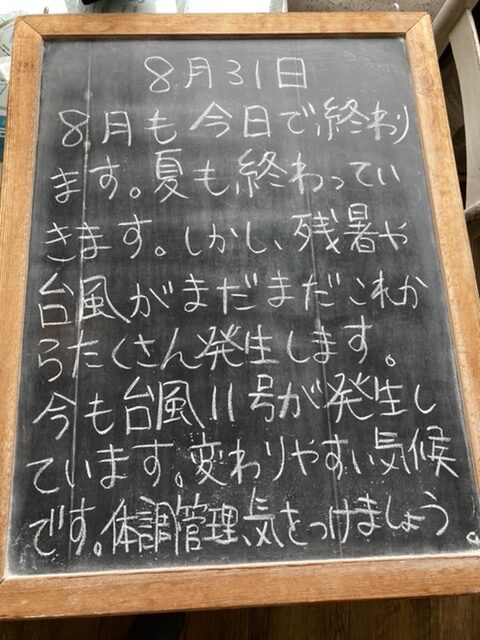 8月31日
8月も今日で終わり
ます。夏も終わってい
きます。しかし、残暑や
台風がまだまだこれか
らたくさん発生します。
今も台風11号が発生し
ています。変わりやすい気候
です。体調管理、気をつけましょう。